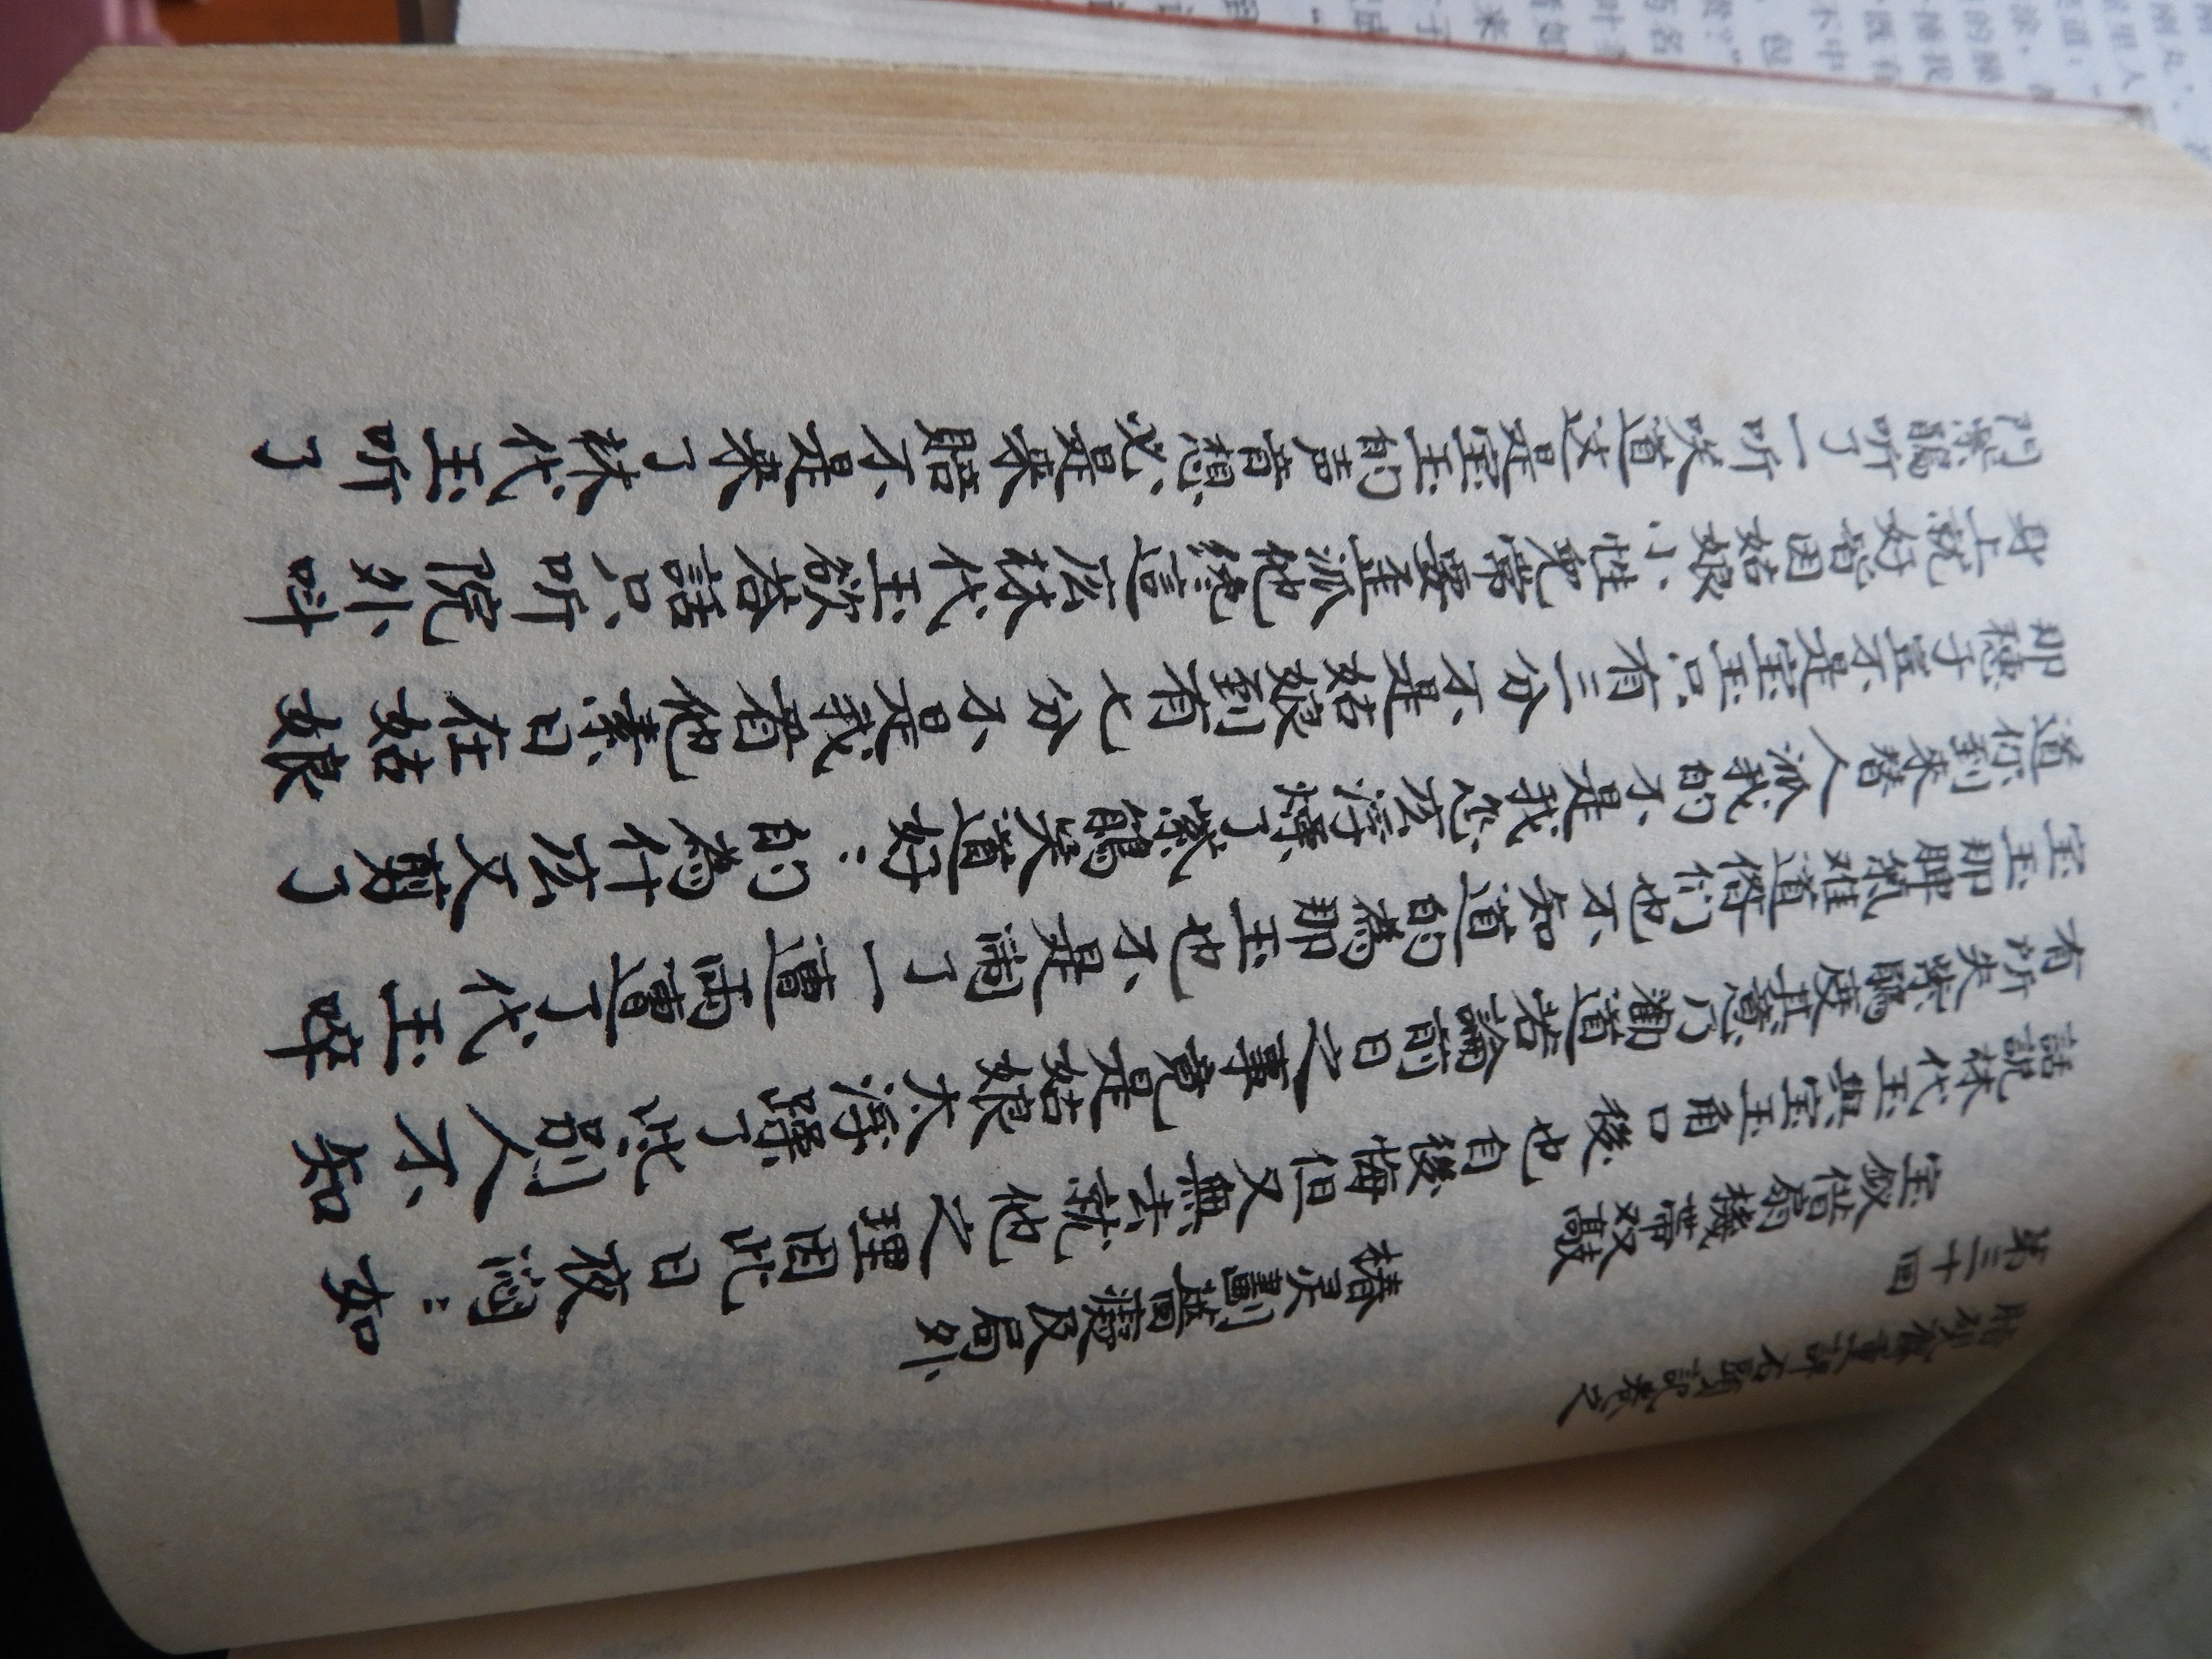 脂硯齋重評石頭記卷之
第三十回
宝釵借扇機帶双敲 椿灵畫薔痴及局外
話說林代玉與宝玉角口後也自後悔但又無去就他之理因此日夜悶〻如
有所失紫鵑度其意乃勸道若論前日之事竟是姑娘太浮躁了些别人不知
宝玉那脾氣难道偺们也不知道的為那玉也不是闹了一遭両遭了代玉啐
道你到来替人派我的不是我怎庅浮燥了紫鵑笑道好〻的為什庅又剪了
那穗子豈不是宝玉只有三分不是姑娘到有七分不是我看他素日在姑娘
身上就好皆因姑娘小性兒常要歪派他終這庅林代玉欲答話只听院外叫
門紫鵑听了一听笑道这是宝玉的声音想必是来賠不是来了林代玉听了